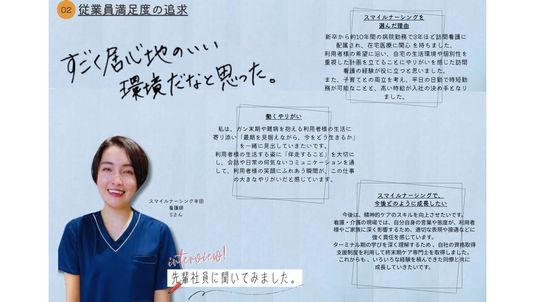 02 従業員満足度の追求
すごく居心地のいい
環境だなと思った。
スマイルナーシングを
選んだ理由
新卒から約10年間の病院勤務で3年ほど訪問看護に
配属され、在宅医療に関心を持ちました。
利用者様の希望に沿い、自宅の生活環境や個別性を
重視した計画を立てることにやりがいを感じた訪問
看護の経験が役に立つと思いました。
また、子育てとの両立を考え、平日の日勤で時短勤
務が可能なことと、高い時給が入社の決め手となり
ました。
働くやりがい
私は、ガン末期や難病を抱える利用者様の生活に
寄り添い「最期を見据えながら、今をどう生きるか」
を一緒に見出していきたいです。
利用者様の生活する姿に「伴走すること」を大切に
し、会話や日常の何気ないコミュニケーションを通
して、利用者様の笑顔にふれあう瞬間が、この仕事
の大きなやりがいだと感じています。
スマイルナーシング半田
看護師
Sさん
スマイルナーシングで、
今後どのように成長したい
今後は、精神的ケアのスキルを向上させたいです。
看護・介護の現場では、自分自身の言葉や態度が、利用者
様やご家族に深く影響するため、適切な表現や接遇などに
強く責任を感じています。
ターミナル期の学びを深く理解するため、自社の資格取得
支援制度を利用して終末期ケア専門士を取得しました。
これからも、いろいろな経験を積んできた同僚と共に
成長していきたいです。
interview!
先輩社員に聞いてみました。